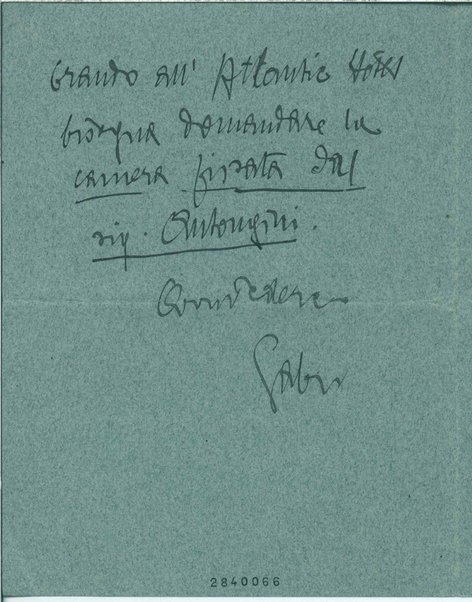 all' Atlantic Hôtel
bisogna domandare la
camera fissata dal
sig. Antongini.
Arrivederci
Gabri
2840066